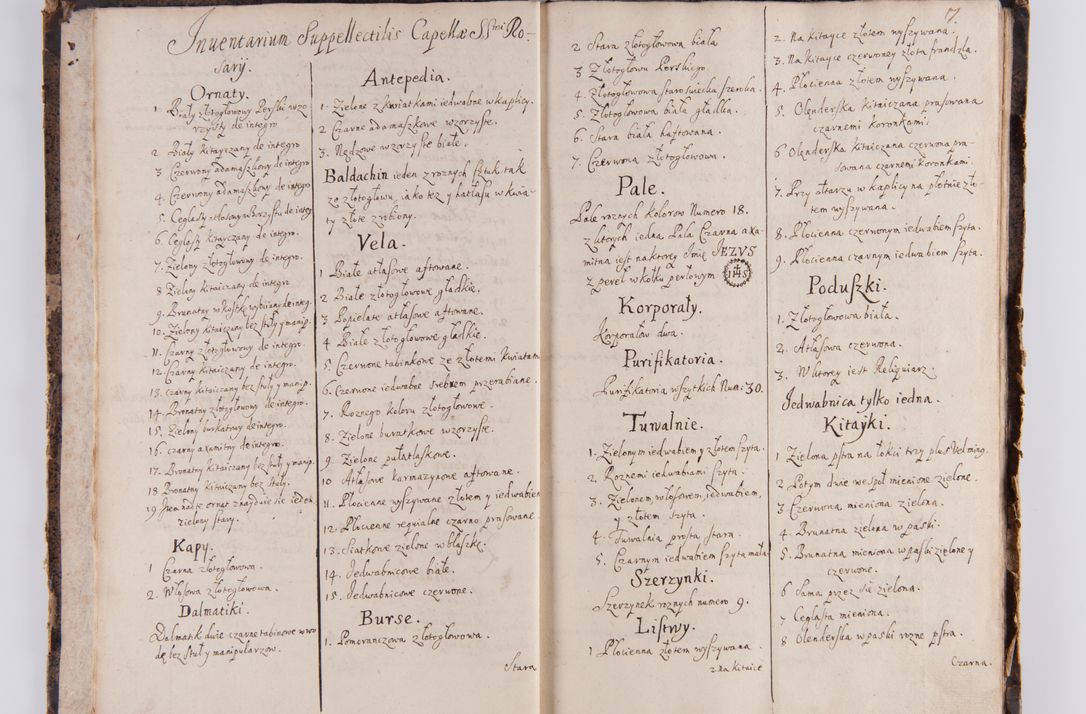 Inventarium Suppellectilis Capellæ SS.mi Ro-
sarij.
Ornaty.
1. Biały złotogłowowy Perski wzo
rzysty de integro
2. Biały kitayczany de integro
3 Czerwony adamaszkowy de integro
4. Czerwony adamaszkowy de integro
5. Ceglasty atłasowy wzorzysty de integ
6. Ceglasty kitayczany de integro.
7. Zielony złotogłowowy de integro.
8 Zielony kitaiczany de integro
9. Brunatny w kostkę wybiiany de integ.
10. Zielony kitaiczany bez stuły y manip.
11. Czarny złotogłowowy de integro.
12. Czarny kitaiczany de integro.
13. czarny kitaiczany bez stuły y manip.
14. Bronatny złotogłowowy de integro.
15. Zielony burkatowy de integro.
16. czarny axamitny de integro.
17. Bronatny kitaiczany bez stuły y manip.
18 Bronatny kitaiczany bez stuły.
19 Item nadte ornat znayduie się ieden
zielony stary.
Kapy.
1 Czarna złotogłowowa.
2. Włosowa złotogłowowa.
Dalmatiki.
Dalmatik dwie czarne tabinowe
bez stuł y manipularzow.
Antepedia.
1. Zielone z kwiatkami iedwabne w kaplicy.
2 Czarne adamaszkowe wzorzyste.
3. Nędzowe wzorzyste białe.
Baldachin ieden z roznych sztuk tak
ze złotogłowu, iako też y hatłasu w kwia-
ty złote zrobiony.
Vela.
1 Białe atłasowe aftowane.
2 Białe złotogłowowe gładkie.
3 Popielate atłasowe aftowane.
4 Białe złotogłowowe gładkie.
5. Czerwone tabinkowe ze złotemi kwiatam
6. Czerwone iedwabne srebrem przerabiane.
7. Rozeego koloru złotogłowowe.
8. Zielone buratkowe wzorzyste.
9. Zielone pułatłaskowe.
10 Atłasowe karmazynowe aftowane.
11. Płocienne wyszywane złotem y iedwabiem
12. Płocienne requialne czarno prasowane
13. Siatkowe zielone w blaszkę.
14. Jedwabnicowe białe.
15. Jedwabnicowe czerwone.
Burse.
1. Pomeranczowa złotogłowowa.
Stara
2 Stara złotogłowowa biała
3 Złotogłowu Perskiego.
4. Złotogłowowa staroświecka szeroka.
5. Złotogłowowa biała gładka.
6. Stara biała haftowana.
7. Czerwona złotogłowowa.
Pale.
Pale roznych kolorow Numero 18.
z ktorych iedna Pala Czarna axa-
mitna iest na ktorey Imię JEZVS
z pereł w kołku perłowym IHS
Korporały.
Korporałow dwa.
Purifikatoria.
Purifikatoria wszytkich Num: 30.
Tuwalnie.
1. Zielonym iedwabiem y złotem szyta.
2. Roznemi iedwabiami szyta.
3. Zielonem, włosowem, iedwabiem,
y złotem szyta.
4. Tuwalnia prosta stara.
5. Czarnym iedwabiem szyta mała
Szerzynki.
Szerzynek roznych numero 9.
Listwy.
1 Płocienna złotem wyszywana
2 na kitaice
7.
2. Na kitayce złotem wyszywana.
3. Na kitayce czerwoney złota frandzla.
4. Płocienna złotem wyszywana.
5. Olenderska kitaiczana prasowana
czarnemi koronkami.
6 Olenderska kitaiczana czerwona pra-
sowana czarnemi koronkami.
7. Przy ołtarzu w kaplicy na płotnie zło-
tem wyszywana.
8. Płocienna czerwonym iedwabiem szyta.
9. Płocienna czarnym iedwabiem szyta.
Poduszki.
1. Złotogłowowa biała.
2. Atłasowa czerwona.
3. W ktorey iest Reliquiarz.
Jedwabnica tylko iedna.
Kitayki.
1 Zielona pstra na łokci trzy plus vel minq.
2 Potym dwie wespoł mienione zielone.
3 Czerwona mieniona zielona.
4. Brunatna zielona w paski.
5. Brunatna mieniona w paski zielone y
czerwone.
6 Sama przez się zielona.
7 Ceglasta mieniona.
8 Olenderska w paski rozne pstra.
Czarna.